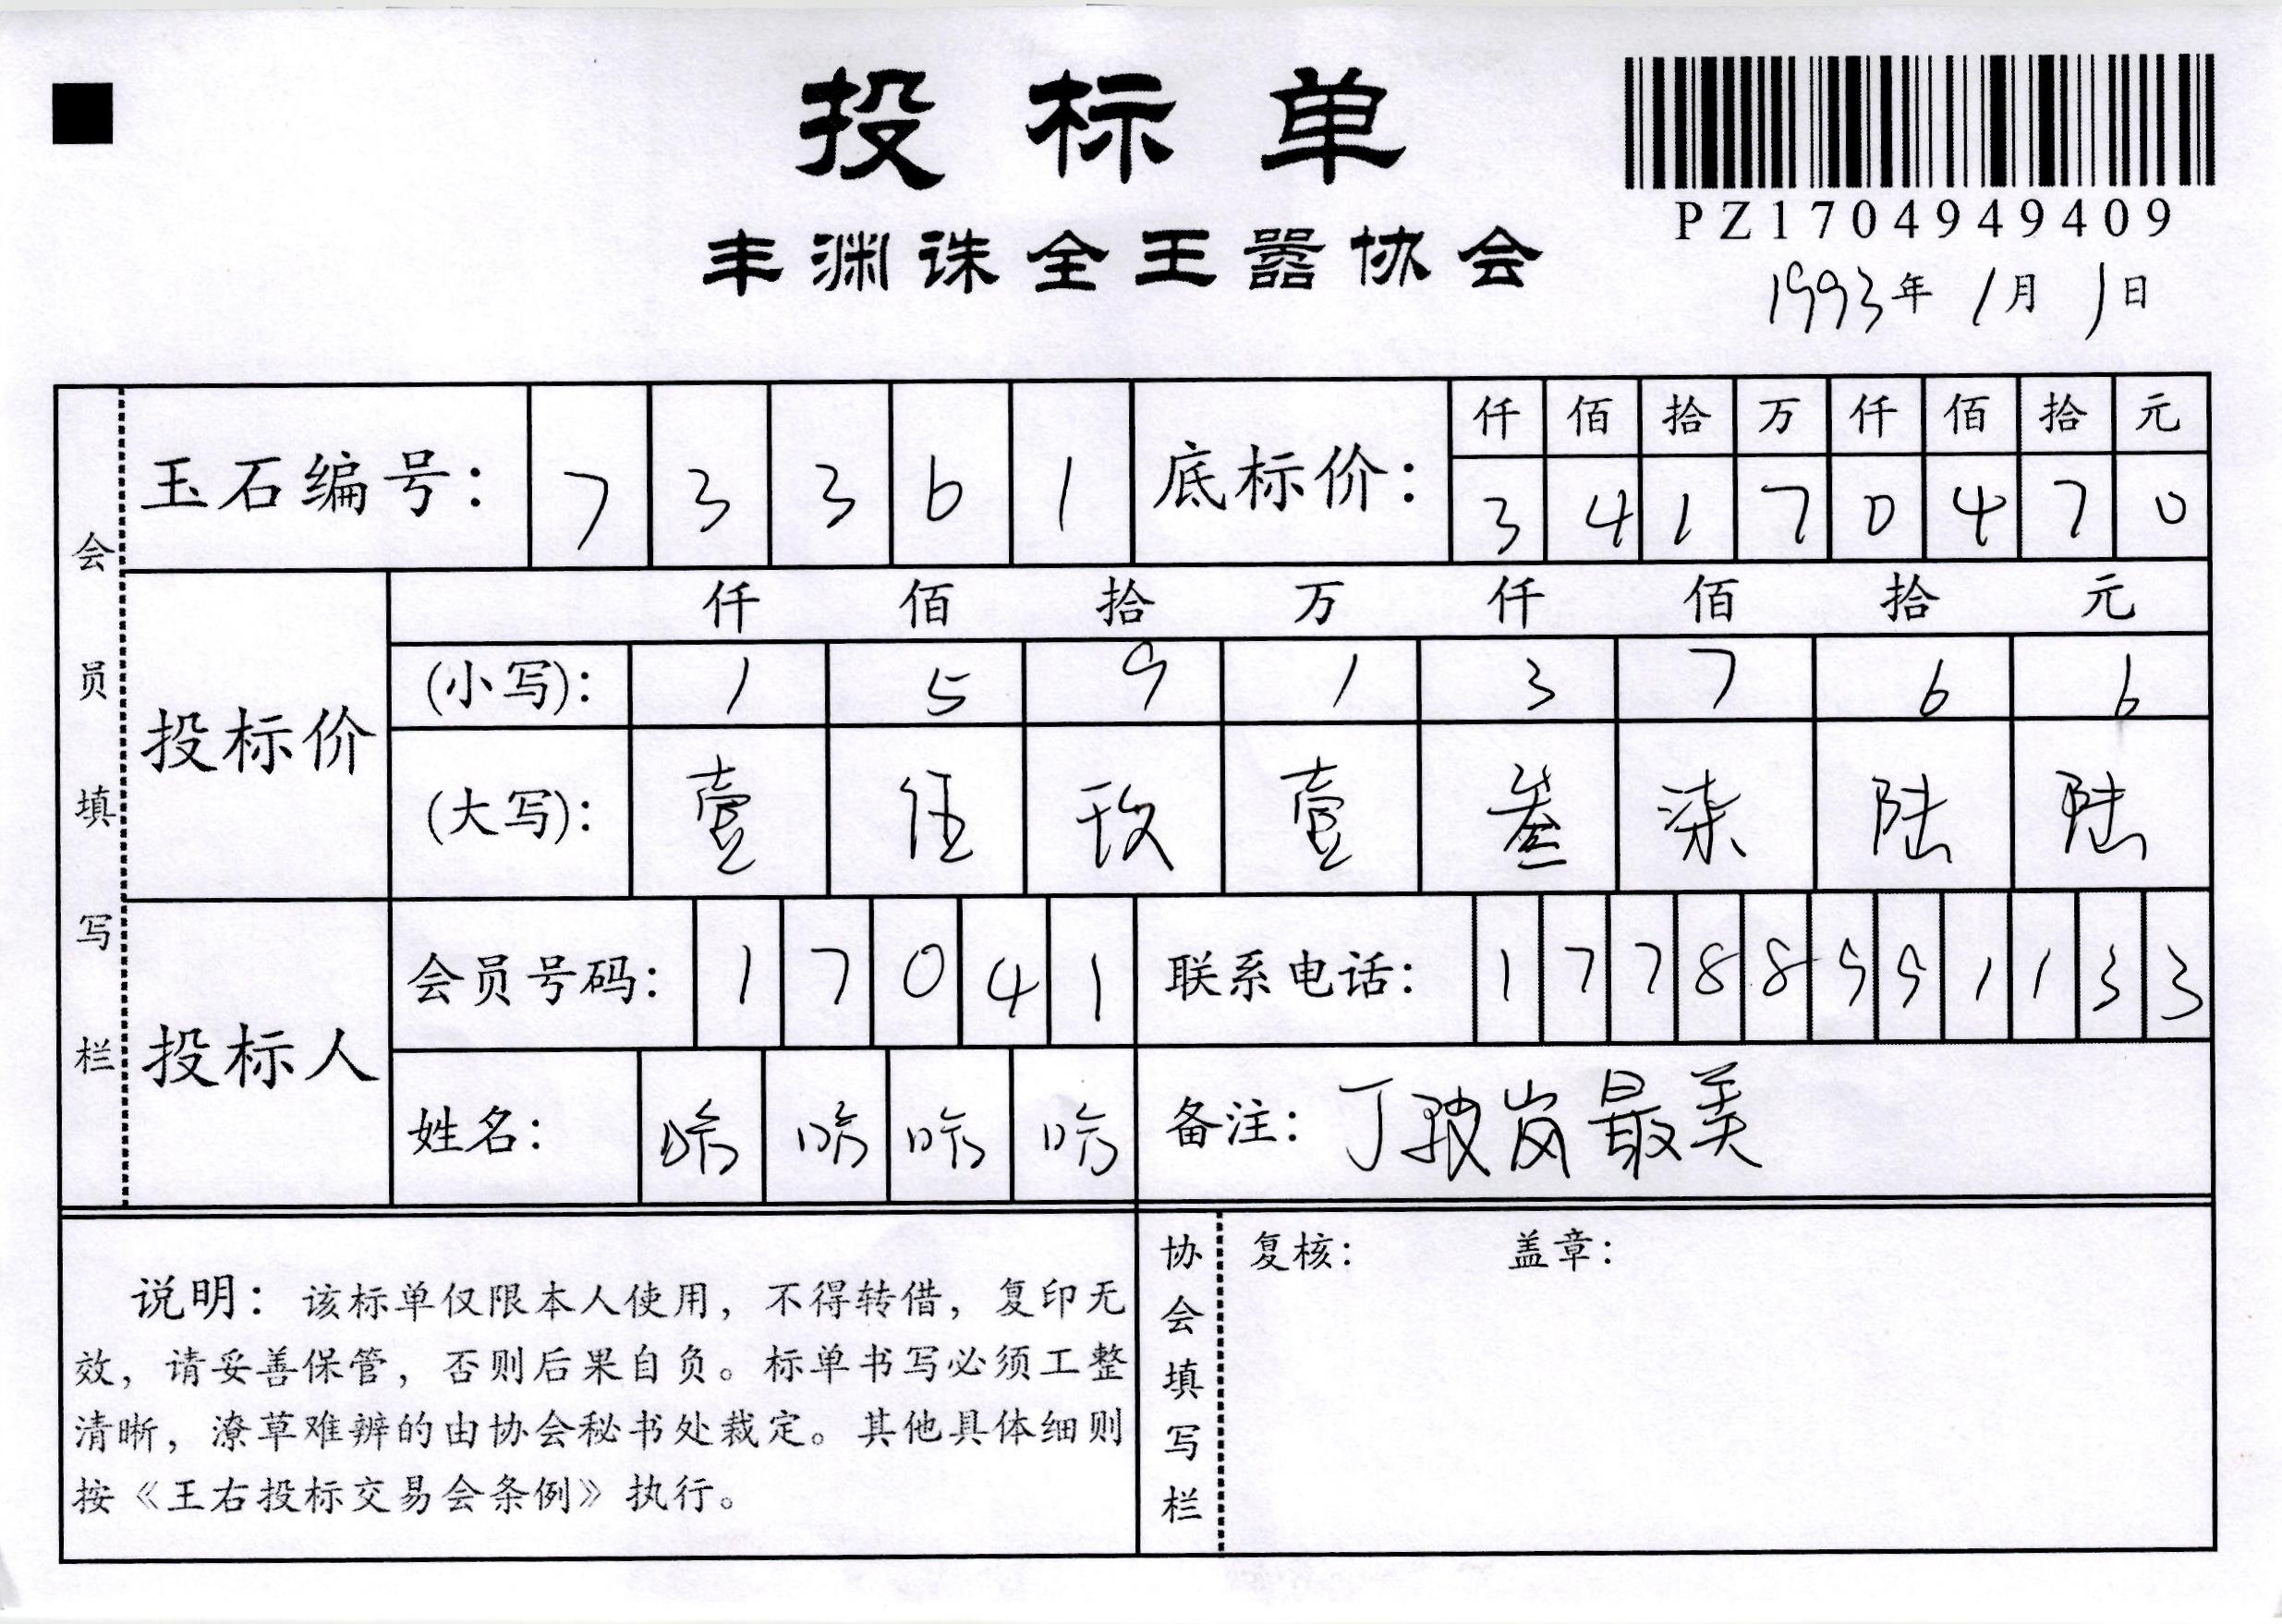 投标单
PZ1704949409
丰渊诛全王嚣协会
1993年 1月 1日
会员填写栏
玉石编号： 7 3 3 6 1
底标价： 仟 佰 拾 万 仟 佰 拾 元
3 4 1 7 0 4 7 0
投标价
仟 佰 拾 万 仟 佰 拾 元
(小写)： 1 5 9 1 3 7 6 6
(大写)： 壹 伍 玖 壹 叁 柒 陆 陆
投标人
会员号码： 1 7 0 4 1
联系电话： 1 7 7 8 8 9 9 1 1 3 3
姓名：
备注： 丁 岚最美
说明：该标单仅限本人使用，不得转借，复印无
效，请妥善保管，否则后果自负。标单书写必须工整
清晰，潦草难辨的由协会秘书处裁定。其他具体细则
按《王右投标交易会条例》执行。
协会填写栏
复核： 盖章：